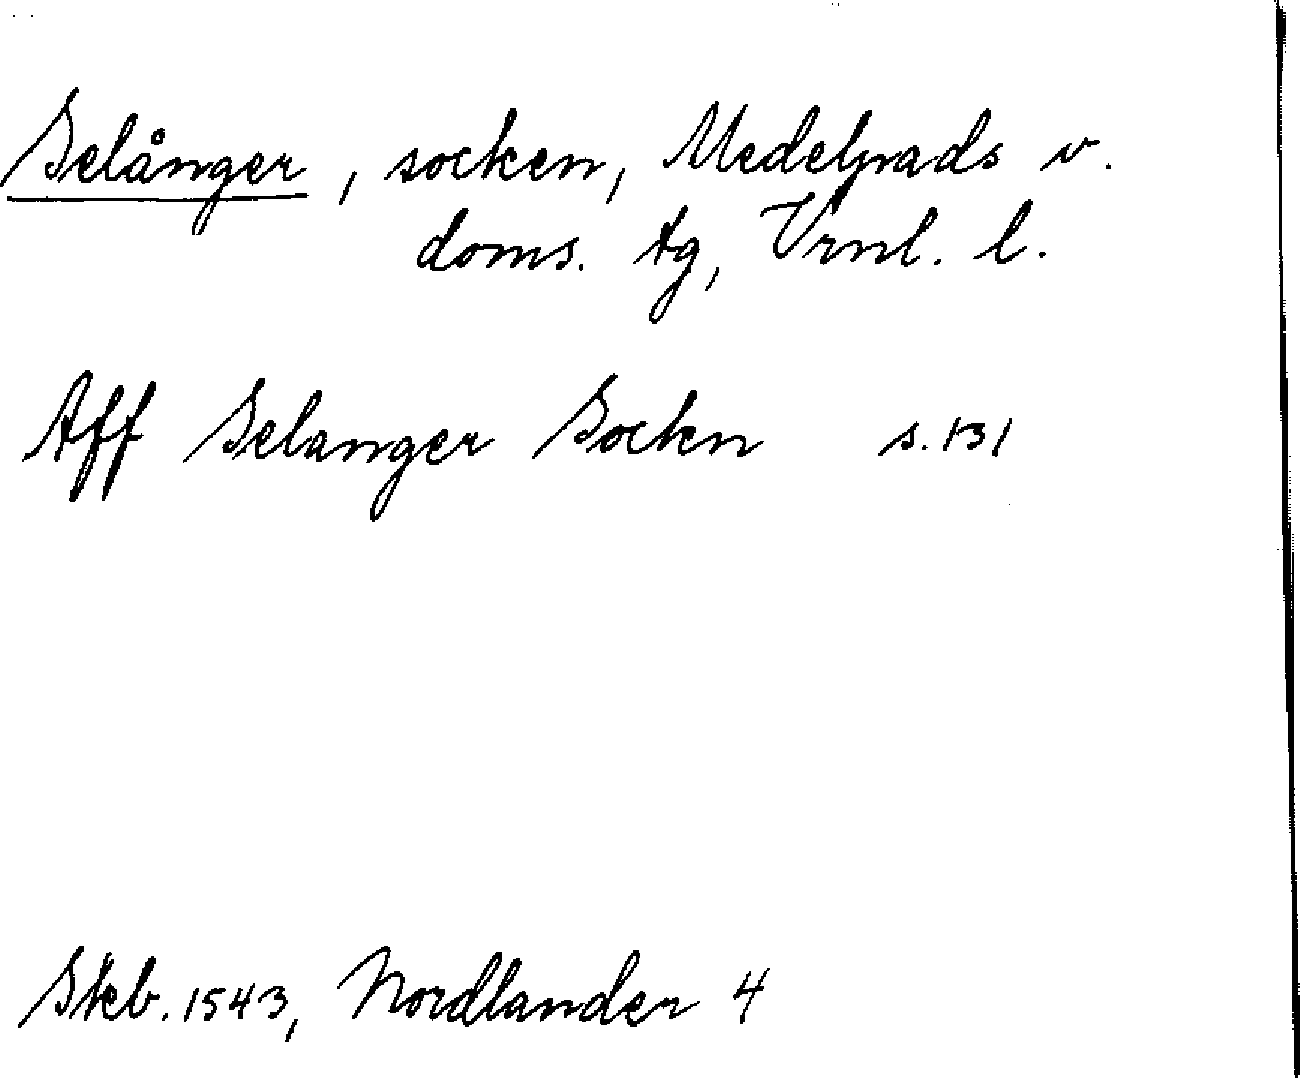 Selånger, socken, Medelpads v.
doms. tg, Vrnl. l.
Aff Selanger Sockn s. 131
Skb. 1543, Nordlander 4